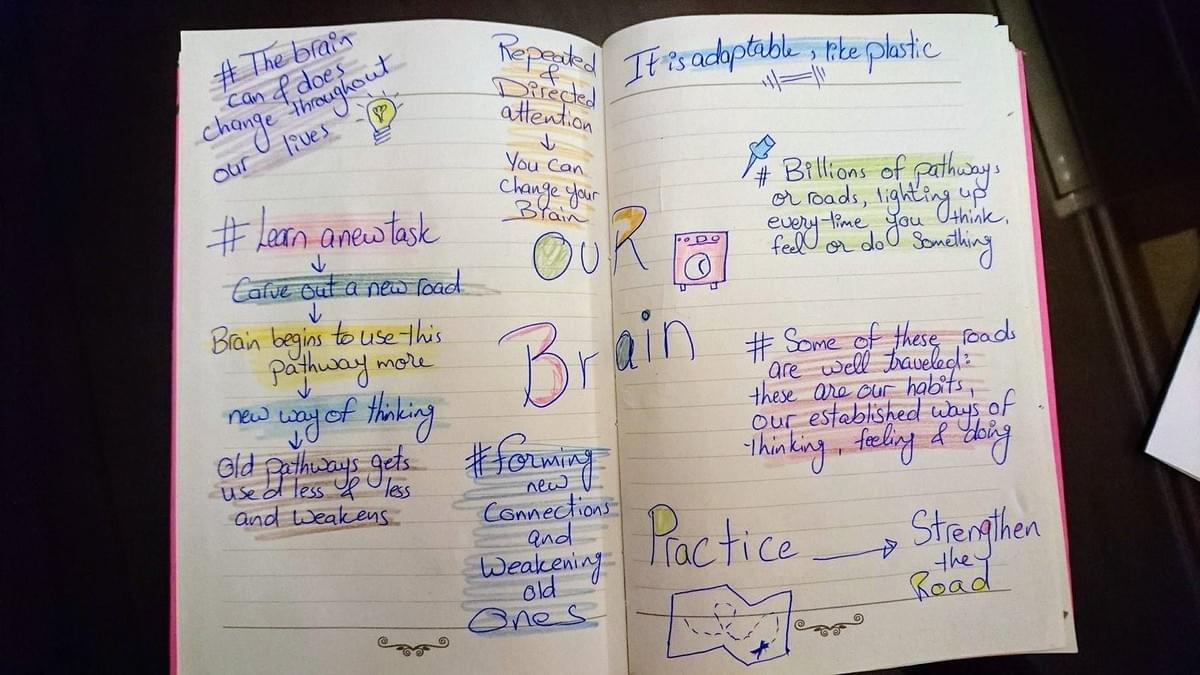 # The brain
can & does
change throughout
our lives
# Learn a new task
↓
Carve out a new road
↓
Brain begins to use this
pathway more
↓
new way of thinking
↓
Old pathways gets
used less & less
and weakens
Repeated
&
Directed
attention
↓
You can
change your
Brain
OUR
Brain
# forming
new
Connections
and
weakening
old
Ones
It is adaptable, like plastic
# Billions of pathways
or roads, lighting up
every-time you think,
feel or do something
# Some of these roads
are well traveled:
these are our habits,
our established ways of
thinking, feeling & doing
Practice → Strengthen
the
Road